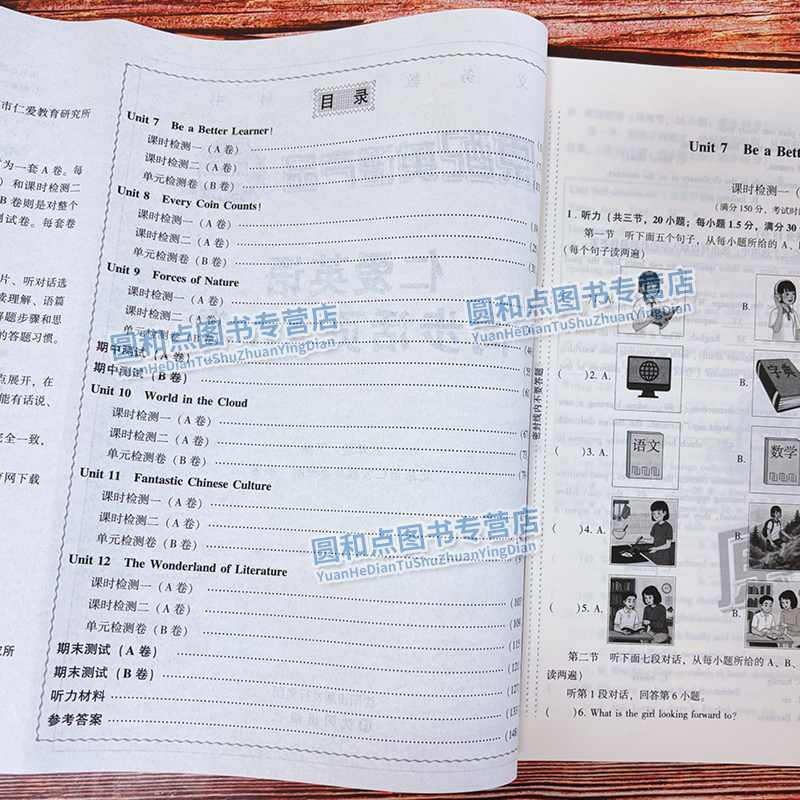 市仁爱教育研究所
为一套 A 卷。每
）和课时检测二
B 卷则是对整
测试卷。每套卷
片、听对话选
读理解、语篇
解题步骤和思
的答题习惯。
点展开，在
能有话说、
完全一致，
育网下载
究所
目 录
Unit 7 Be a Better Learner!
课时检测一（A 卷）
课时检测二（A 卷）
单元检测卷（B 卷）
Unit 8 Every Coin Counts!
课时检测一（A 卷）
课时检测二（A 卷）
单元检测卷（B 卷）
Unit 9 Forces of Nature
课时检测一（A 卷）
课时检测二（A 卷）
单元检测卷（B 卷）
期中测试（A 卷）
期中测试（B 卷）
Unit 10 World in the Cloud
课时检测一（A 卷） (67
课时检测二（A 卷） (73
单元检测卷（B 卷） (79
Unit 11 Fantastic Chinese Culture
课时检测一（A 卷）
课时检测二（A 卷）
单元检测卷（B 卷）
Unit 12 The Wonderland of Literature
课时检测一（A 卷） (103
课时检测二（A 卷） (109
单元检测卷（B 卷） (115
期末测试（A 卷） (121
期末测试（B 卷） (127
听力材料 (133
参考答案 (148
圆和点图书专营店
YuanHeDianTuShuZhuanYingDian
圆和点图书专营店
YuanHeDianTuShuZhuanYingDian
圆和点图书专营店
YuanHeDianTuShuZhuanYingDian
密封线内不要答题
Unit 7 Be a Bette
课时检测一（
（满分 150 分，考试时
Ⅰ. 听力（共三节，20 小题；每小题 1.5 分，满分 30
第一节 听下面五个句子，从每小题所给的 A、
（每个句子读两遍）
A. B.
( )2. A. B. 字典
( )3. A. 语文 B. 数学
( )4. A. B.
( )5. A. B.
第二节 听下面七段对话，从每小题所给的 A、B、
读两遍）
听第 1 段对话，回答第 6 小题。
( )6. What is the girl looking forward to?